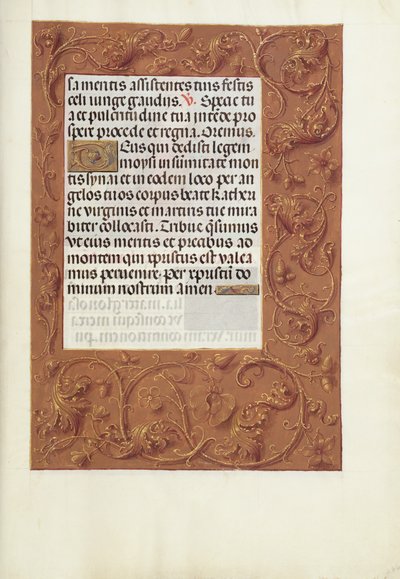 sa mentis assistentes tuis festis
celi iunge gaudijs. V. Specie tu
a et pulcritudine tua intede pro
spere procede et regna. Oremus.
Deus qui dedisti legem
moysi in sumitate mon
tis synai et in eodem loco per an
gelos tuos corpus beate katheri
ne virginis et martiris tue mira
biliter collocasti. Tribue qsumus
vt eius meritis et precibus ad
montem qui xpristus est vale a
mus peruenire. per xpristum do
minum nostrum amen.